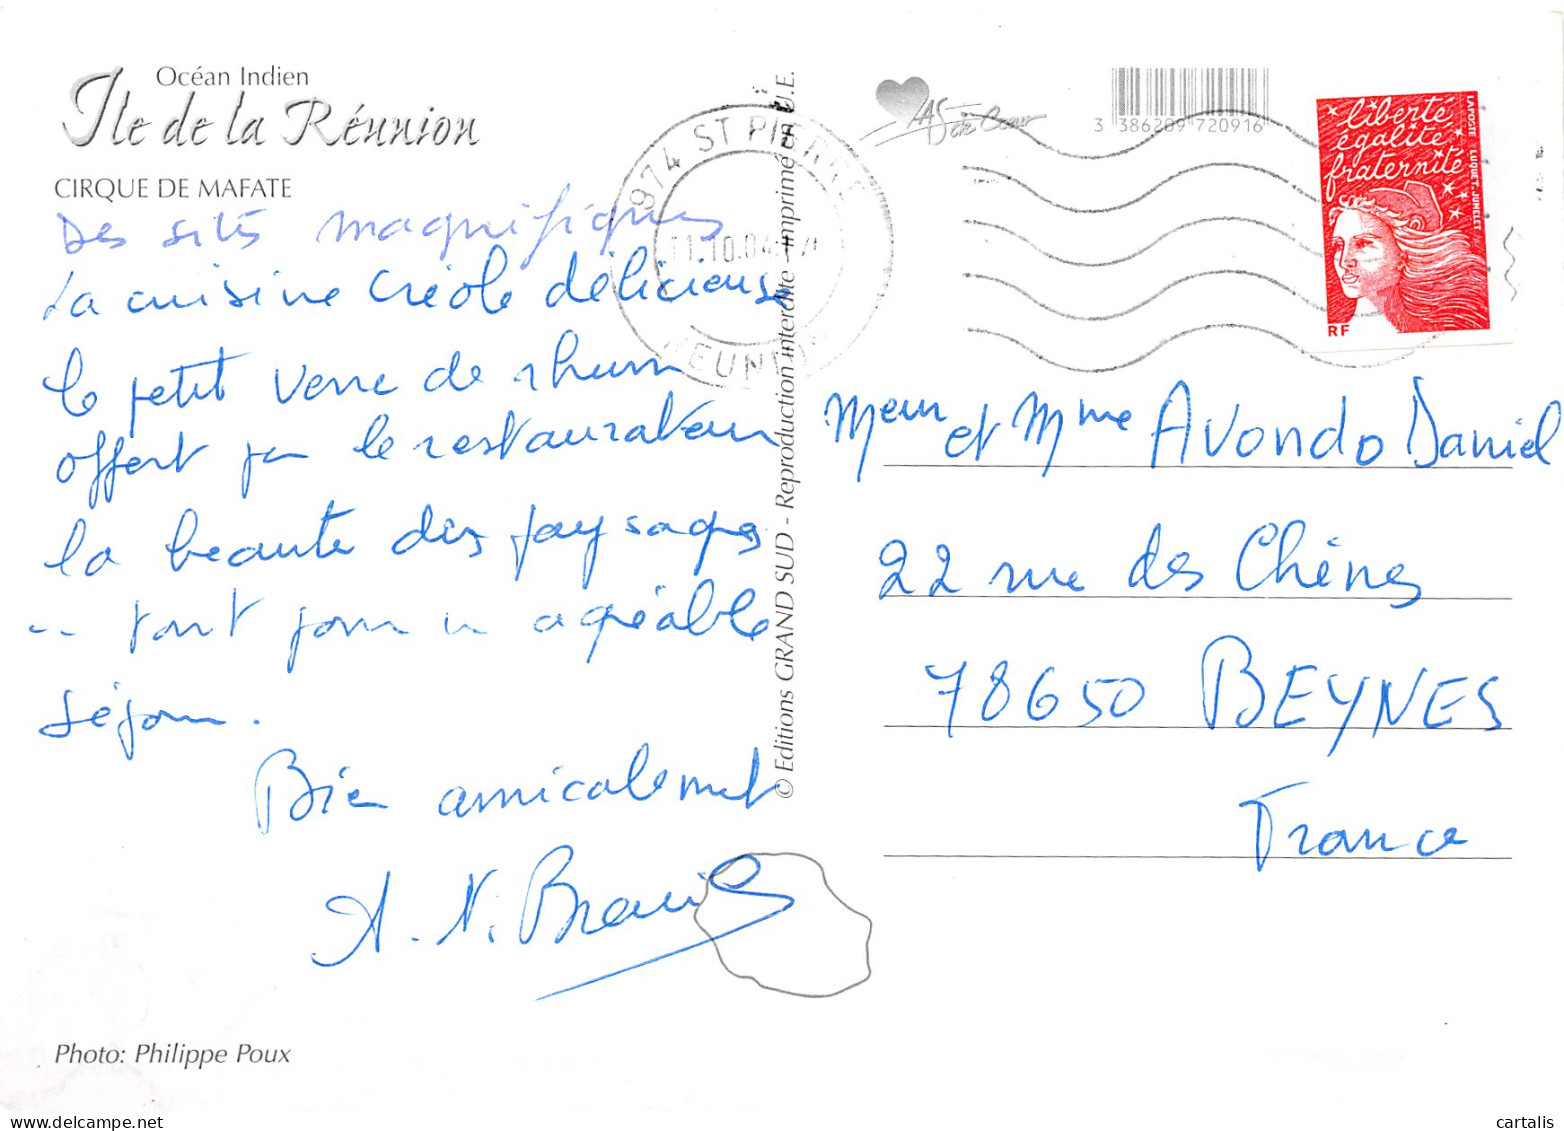 Océan Indien
Ile de la Réunion
CIRQUE DE MAFATE
Des sites magnifiques
La cuisine créole délicieuse
le petit verre de rhum
offert par le restaurateur
la beauté des paysages
.. tout pour un agréable
séjour.
Bien amicalement
A. N.
Photo: Philippe Poux
© Editions GRAND SUD - Reproduction interdite - Imprimé en U.E.
974 ST PIERRE
REUNION
AS de Coeur
3 386209 720916
liberté
égalité
fraternité
LA POSTE LUQUET-JUMELET
RF
Meur et Mme Avondo Daniel
22 rue des Chênes
78650 BEYNES
France
cartalis